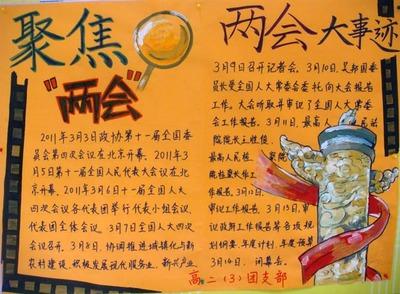 聚焦
"两会"
2011年3月3日政协第十一届全国委
员会第四次会议在北京开幕。2011年3
月5日第十一届全国人民代表大会在北京
开幕。2011年3月6日十一届全国人大
四次会议各代表团举行代表小组会议,
代表团全体会议。3月7日全国人大四次
会议召开。3月8日,协调推进城镇化与新
农村建设、积极发展现代服务业、新兴产业
两会大事迹
3月9日召开记者会。3月10日,吴邦国委
员长受全国人大常委会委托向大会报告
工作。大会听取并审议了全国人大常委
会工作报告。3月11日,最高人民法
院院长王胜俊、
最高人民检察院
院检察长作
工作报告。3月12日,
审议工作报告。3月13日,审
议政府工作报告筹各项规
划纲要、年度计划、年度预算
3月14日,闭幕会。
高二(3)团支部